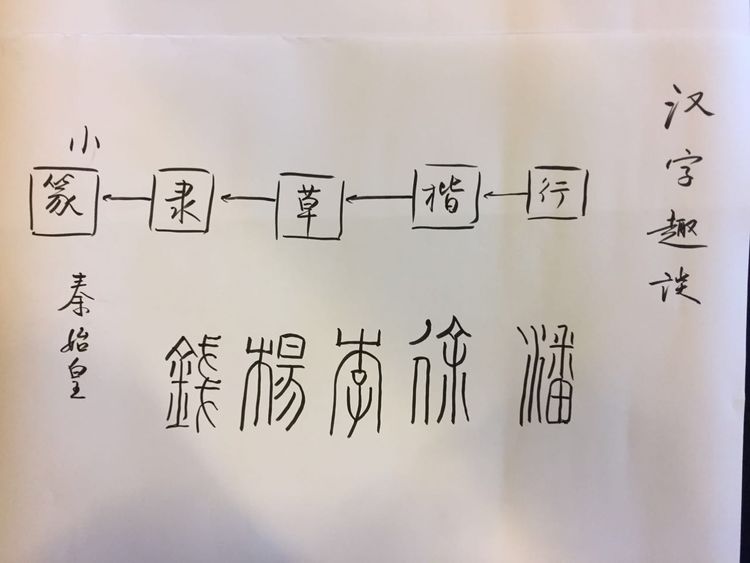 汉字趣谈
小
篆 隶 草 楷 行
秦始皇
錢 楊 李 徐 潘